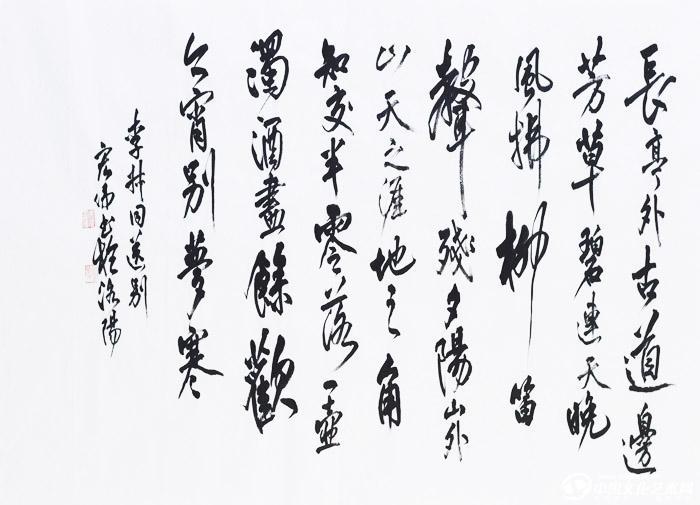 長亭外古道邊
芳草碧連天晚
風拂柳笛
聲殘夕陽山外
山天之涯地之角
知交半零落一壺
濁酒盡餘歡
今宵別夢寒
李叔同送別
书於洛陽
中国文化艺术网